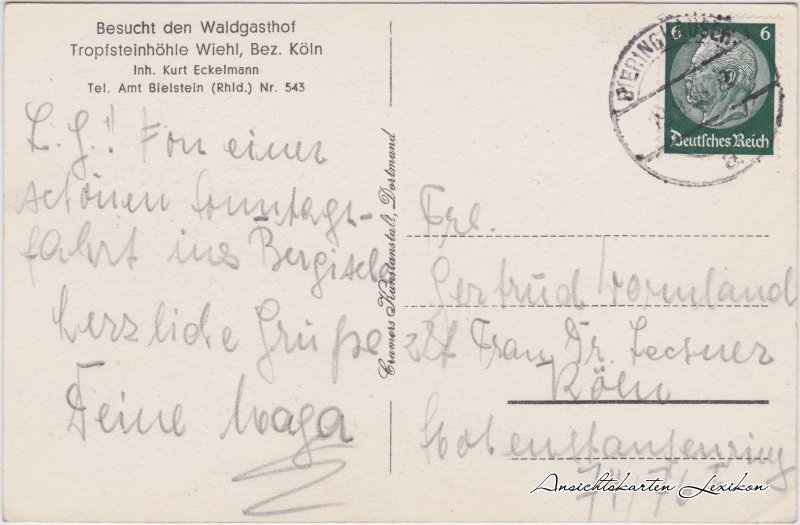 Besucht den Waldgasthof
Tropfsteinhöhle Wiehl, Bez. Köln
Inh. Kurt Eckelmann
Tel. Amt Bielstein (Rhld.) Nr. 543
L. G.! Von einer
schönen Sonntags-
fahrt ins Bergische
herzliche Grüße
Deine
Cramers Kunstanstalt, Dortmund
BIERINGHAUSEN
a
6 6
Deutsches Reich
Frl.
Gertrud
Frau Dr.
Köln
Hohenstaufenring
Ansichtskarten Lexikon